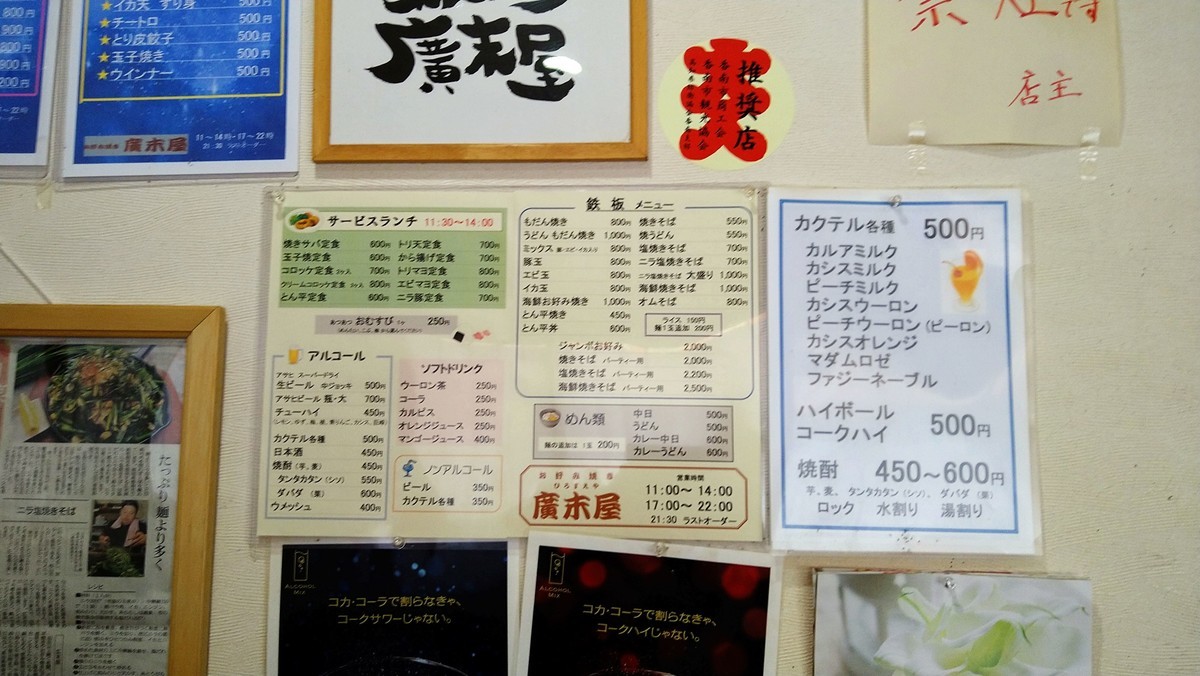 800円
900円
800円
200円
イカ天 すり身 500円
★チートロ 500円
★とり皮餃子 500円
★玉子焼き 500円
★ウインナー 500円
お好み焼き 廣末屋
11～14時・17～22時
21:30 ラストオーダー
廣末屋
推奨店
香南市商工会
香南市観光協会
店主
サービスランチ 11:30～14:00
焼きサバ定食 600円 トリ天定食 700円
玉子焼定食 600円 から揚げ定食 700円
コロッケ定食 3ヶ入 700円 トリマヨ定食 800円
クリームコロッケ定食 3ヶ入 800円 エビマヨ定食 800円
とん平定食 600円 ニラ豚定食 700円
あつあつ おむすび 1ヶ 250円
アルコール
アサヒ スーパードライ
生ビール 中ジョッキ 500円
アサヒビール 瓶・大 700円
チューハイ 450円
カクテル各種 500円
日本酒 450円
焼酎(芋、麦) 450円
タンタカタン(シソ) 550円
ダバダ (栗) 600円
ウメッシュ 400円
ソフトドリンク
ウーロン茶 250円
コーラ 250円
カルピス 250円
オレンジジュース 250円
マンゴージュース 400円
ノンアルコール
ビール 350円
カクテル各種 350円
鉄板 メニュー
もだん焼き 800円 焼きそば 550円
うどん もだん焼き 1,000円 焼うどん 550円
ミックス 豚・エビ・イカ入り 800円 塩焼きそば 700円
豚玉 800円 ニラ塩焼きそば 700円
エビ玉 800円 ニラ塩焼きそば 大盛り 1,000円
イカ玉 800円 海鮮焼きそば 1,000円
海鮮お好み焼き 1,000円 オムそば 800円
とん平焼き 450円
とん平丼 600円
ライス 150円
麺1玉追加 200円
ジャンボお好み 2,000円
焼きそば パーティー用 2,000円
塩焼きそば パーティー用 2,200円
海鮮焼きそば パーティー用 2,500円
めん類
麺の追加は 1玉 200円
中日 500円
うどん 500円
カレー中日 600円
カレーうどん 600円
お好み焼き
ひろすえや
廣末屋
営業時間
11:00～ 14:00
17:00～ 22:00
21:30 ラストオーダー
カクテル各種 500円
カルアミルク
カシスミルク
ピーチミルク
カシスウーロン
ピーチウーロン(ピーロン)
カシスオレンジ
マダムロゼ
ファジーネーブル
ハイボール
コークハイ 500円
焼酎 450～600円
芋、麦、タンタカタン(シソ)、ダバダ (栗)
ロック 水割り 湯割り
たっぷり麺より多く
ニラ塩焼きそば
レシピ
ALCOHOL MIX
コカ・コーラで割らなきゃ、
コークサワーじゃない。
ALCOHOL MIX
コカ・コーラで割らなきゃ、
コークハイじゃない。